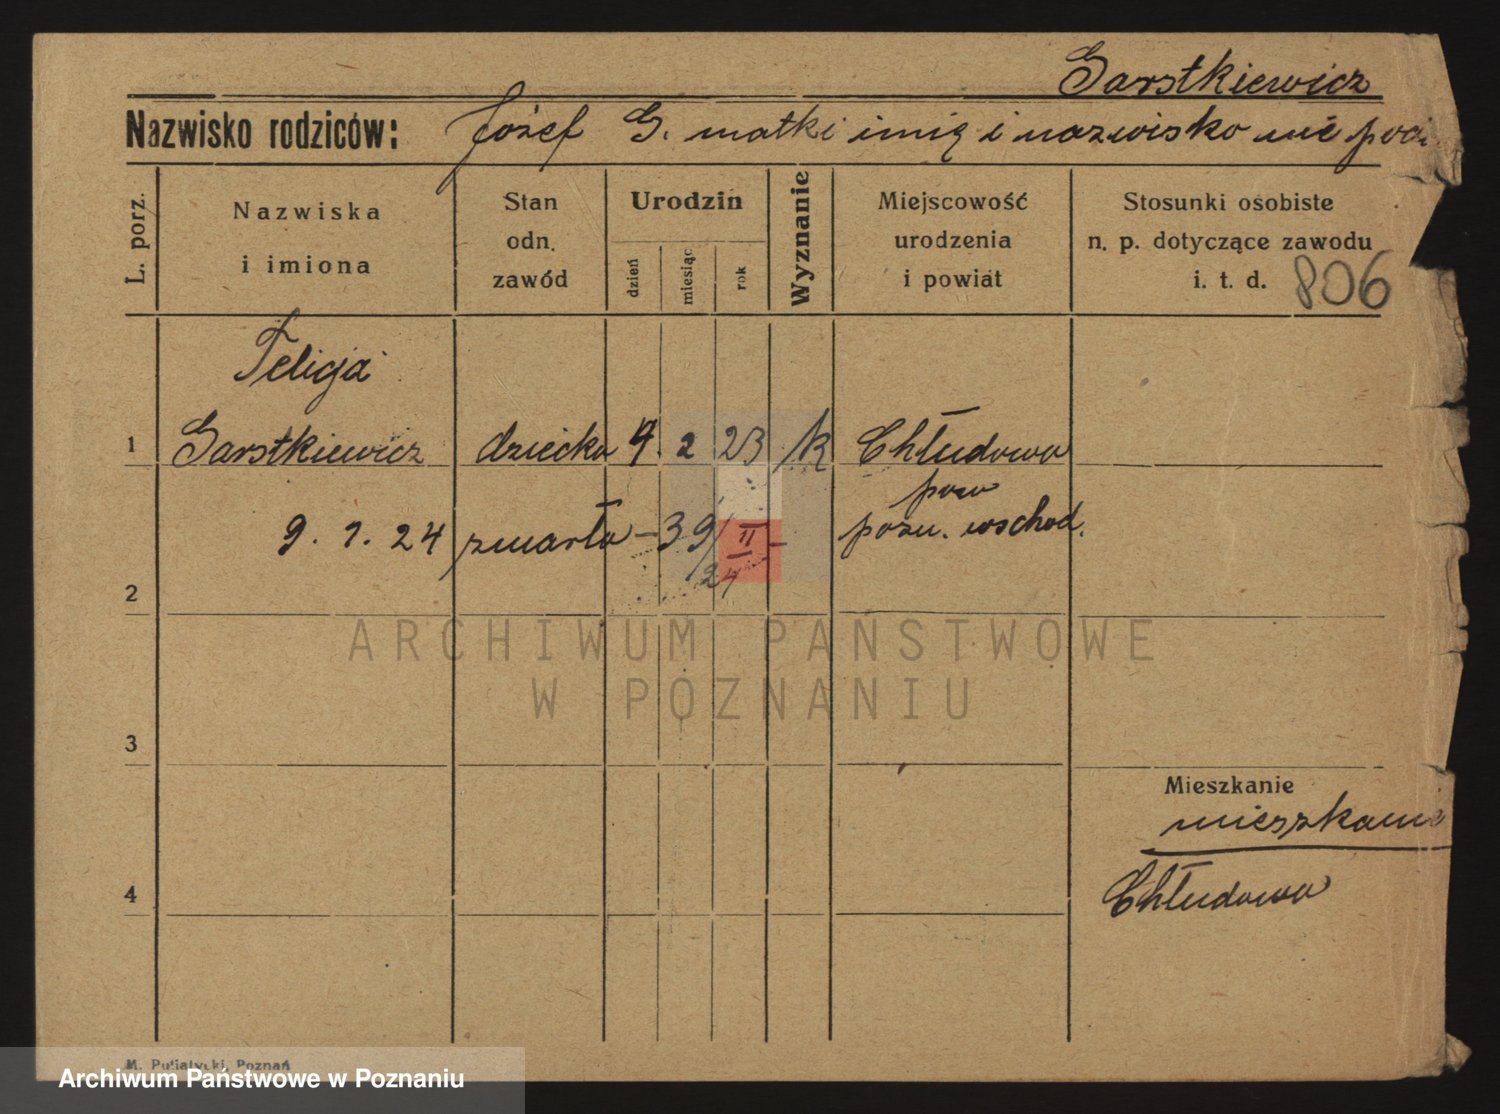 Garstkiewicz
Nazwisko rodziców: Józef G. matki imię i nazwisko nie
L. porz.
Nazwiska
i imiona
Stan
odn.
zawód
Urodzin
dzień
miesiąc
rok
Wyznanie
Miejscowość
urodzenia
i powiat
Stosunki osobiste
n. p. dotyczące zawodu
i. t. d. 806
Felicja
1 Garstkiewicz dziecko 4. 2 23 k Chłudowo
pow
9. 1. 24 zmarła – 39/II – pozn. wschod.
24
2
3
Mieszkanie
mieszkanie
4 Chłudowo
ARCHIWUM PAŃSTWOWE
W POZNANIU
M. Putiatycki, Poznań
Archiwum Państwowe w Poznaniu